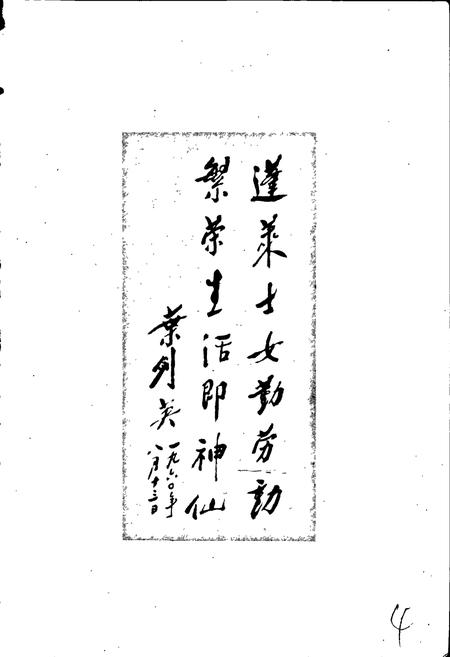 蓬莱士女勤劳動
繁荣生活即神仙
葉剑英
一九六〇年
八月十三日
4